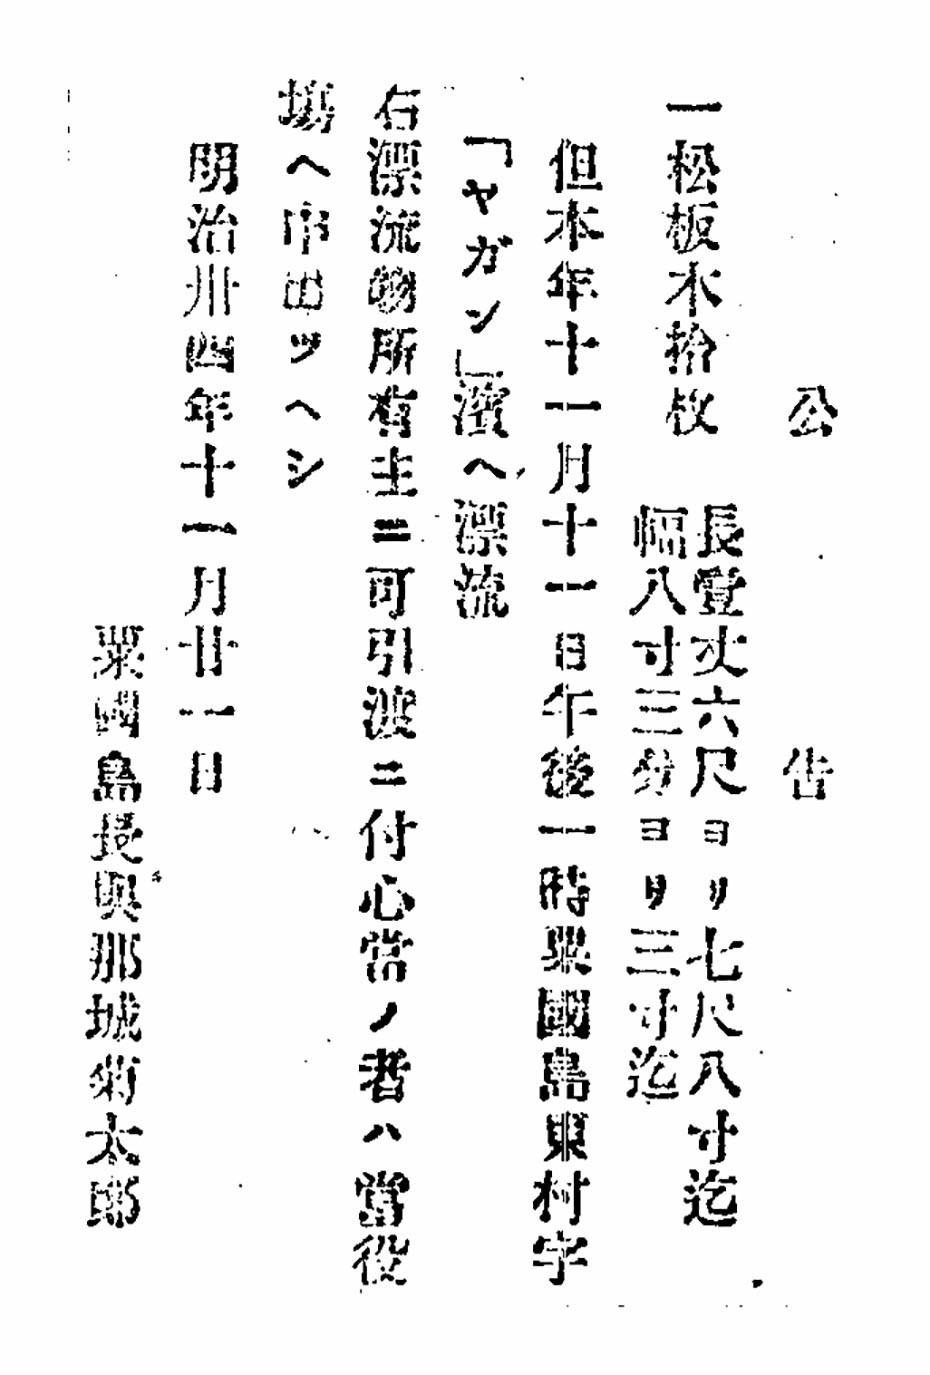 公告
一松板木拾枚
長壹丈六尺ヨリ七尺八寸迄
幅八寸三分ヨリ三寸迄
但本年十一月十一日午後一時粟國島東村字
「ヤガン」濱ヘ漂流
右漂流物所有主ニ可引渡ニ付心當ノ者ハ當役
塲ヘ申出ツヘシ
明治卅四年十一月廿一日
粟國島長與那城菊太郎